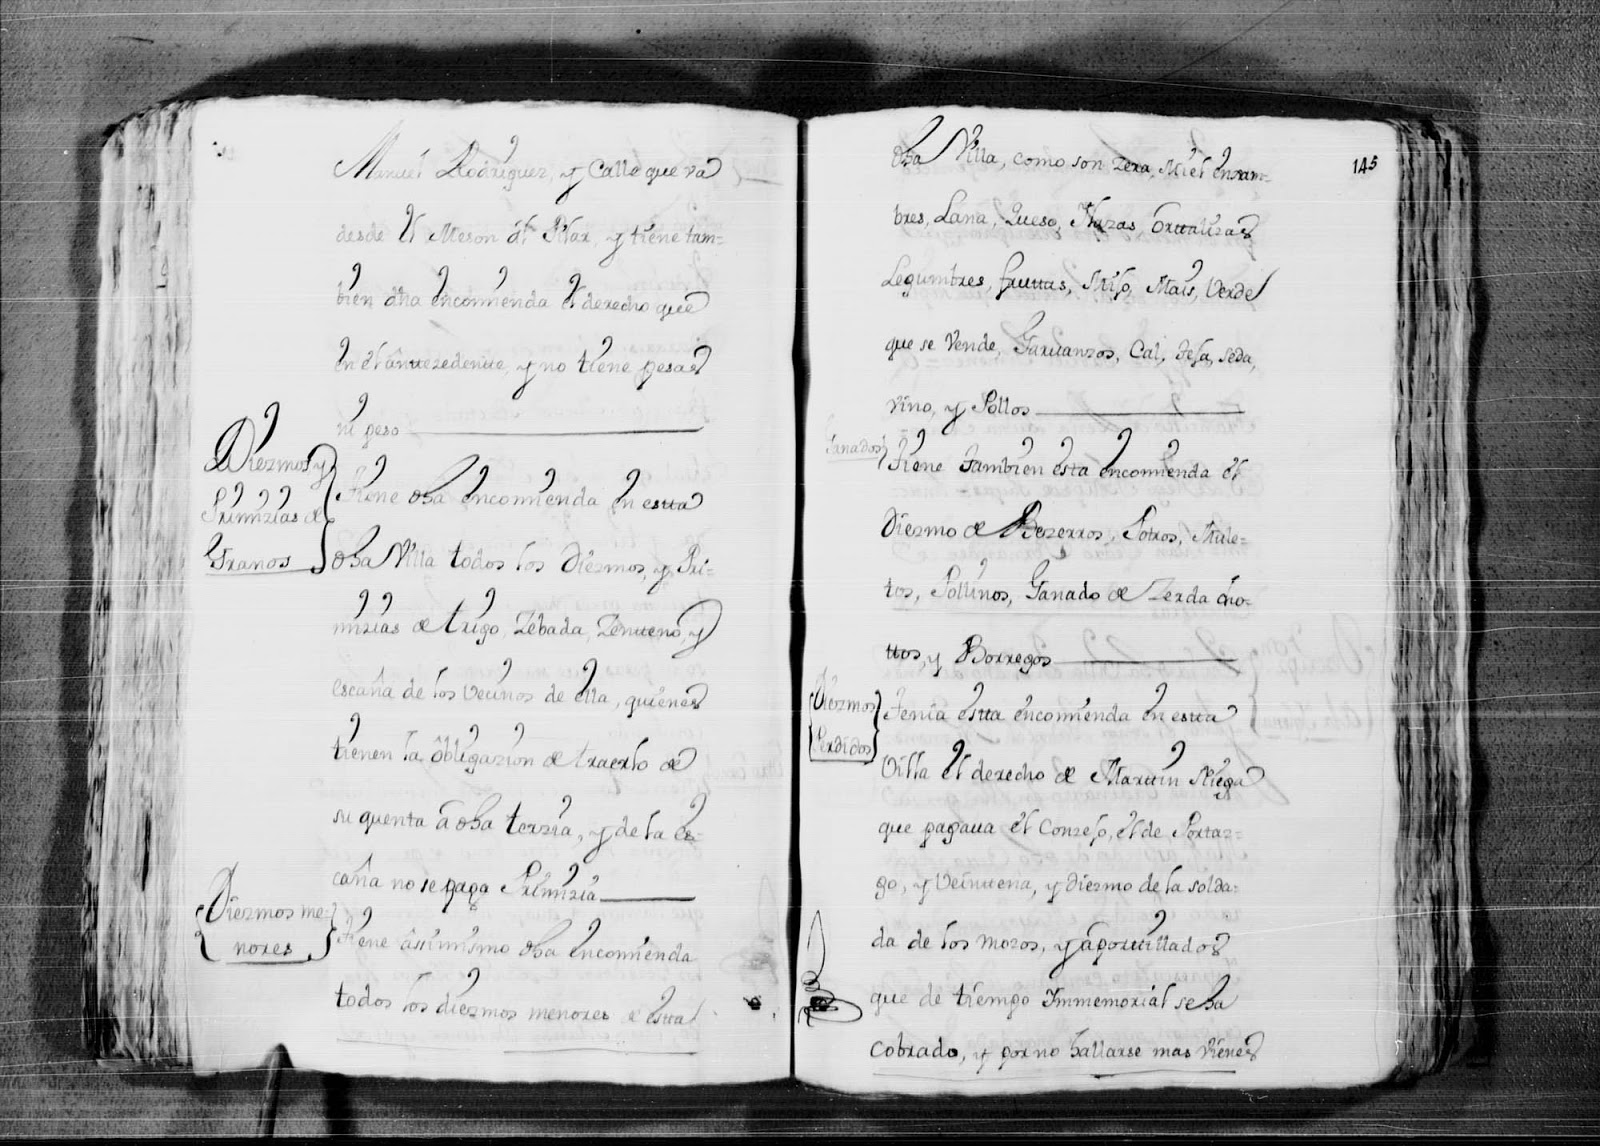 Manuel Rodriguez, y Calle que va
desde el Meson del Pilar, y tiene tam=
bien dha encomienda el derecho que
en el antezedente, y no tiene pesas
ni peso
Diezmos y
Primizias de
Granos
Tiene dha encomienda en estta
dha Villa todos los Diezmos, y Pri-
mizias de trigo, Zebada, Zentteno, y
escaña de los Vecinos de ella, quienes
tienen la obligazion de traerlo de
su quenta â dha terzia, y de la es-
caña no se paga Primizia
Diezmos me-
nores
Tiene âsimismo dha encomienda
todos los diezmos menores de estta
145
dha Villa, como son Zera, Miel enxam-
bres, Lana, Queso, Hazas, ôrttalizas
Legumbres, fruttas, Mijo, Mais, Verde
que se Vende, Garvanzos, Cal, teja, seda,
vino, y Pollos
Ganados
Tiene tambien esta encomienda el
Diezmo de Bezerros, Potros, Mule-
tos, Pollinos, Ganado de Zerda cho-
ttos, y Borregos
Diezmos
Perdidos
Tenia estta encomienda en estta
Villa el derecho de Marttin Niega
que pagava el Conzejo, el de Portaz-
go, y Veinttena, y diezmo de la solda-
da de los mozos, y aporttillados
que de tiempo Immemorial se ha
Cobrado, y por no hallarse mas vienes